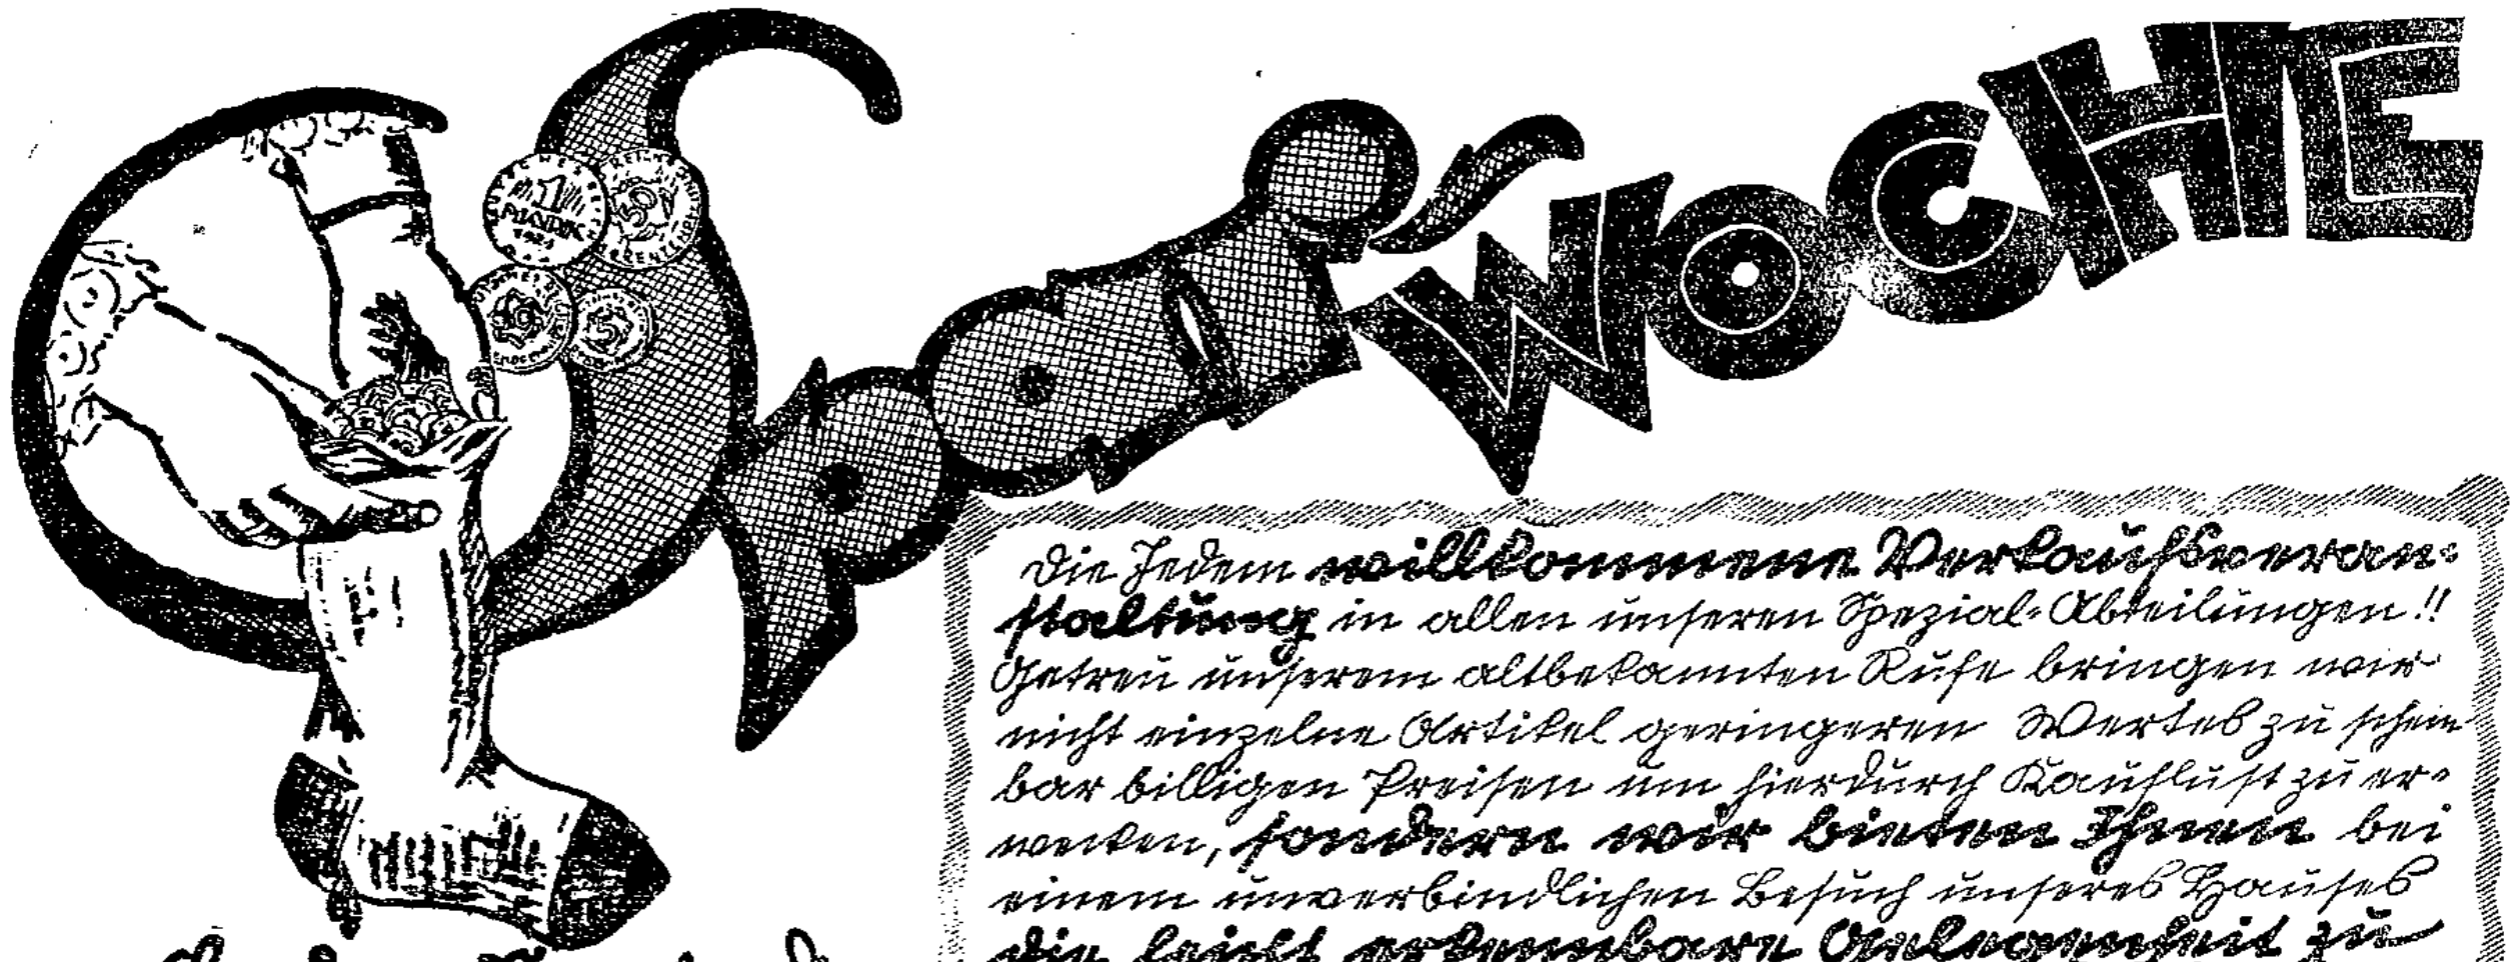 Spar-WOCHE
1 MARK
50
10
5
Die Jedem willkommene Verkaufsveran-
staltung in allen unseren Spezial-Abteilungen!!
Getreu unserem altbekannten Rufe bringen wir
nicht einzelne Artikel geringeren Wertes zu schein
bar billigen Preisen um hierdurch Kauflust zu er-
wecken, sondern wir bieten Ihnen bei
einem unverbindlichen Besuch unseres Hauses
die leicht erkennbare Gelegenheit zu